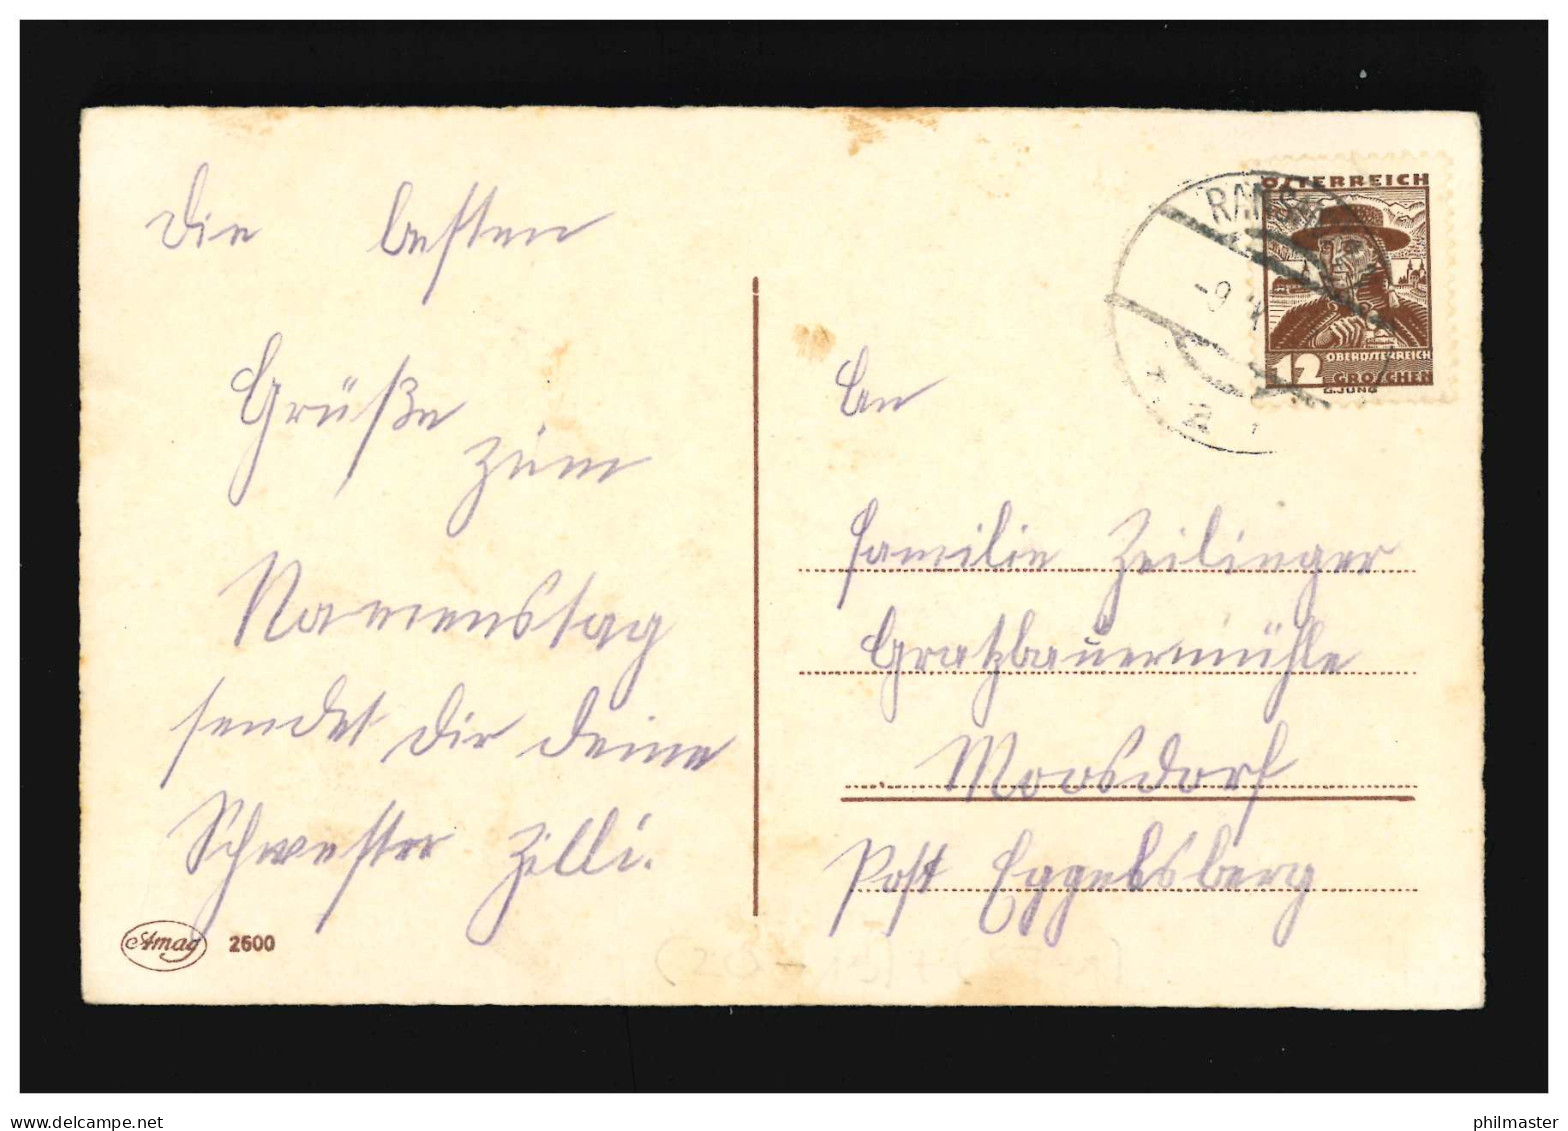 Die besten
Grüße
zum
Namenstag
sendet dir deine
Schwester Zilli.
Amag 2600
ÖSTERREICH
RANSH
-9. V
12
OBERÖSTERREICH
GROSCHEN
G.JUNG
* 2
An
Familie Zeilinger
Gratzbauermühle
Moosdorf
Post Eggelsberg
www.delcampe.net
philmaster